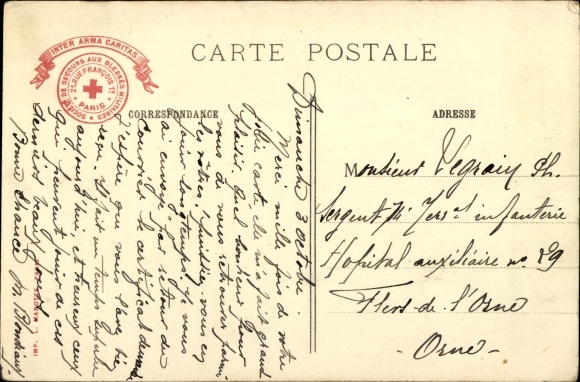 INTER ARMA CARITAS
SOCIÉTÉ DE SECOURS AUX BLESSÉS MILITAIRES
21, RUE FRANÇOIS 1er
PARIS
CARTE POSTALE
CORRESPONDANCE
ADRESSE
Dimanche 3 octobre
Merci mille fois de votre
jolie carte elle m'a fait grand
plaisir, quel bonheur pour
vous de vous retrouver parmi
les vôtres,
pour longtemps. Je vous
ai envoyé par retour de
courrier le certificat
J'espère que vous l'avez bien
reçu. Il fait un temps superbe
aujourd'hui, et heureux ceux
qui peuvent jouir de ces
derniers beaux jours
Bonne chance M.
Monsieur Ph.
Sergent infanterie
Hopital auxiliaire no
Flers-de-l'Orne
- Orne -
IMP.